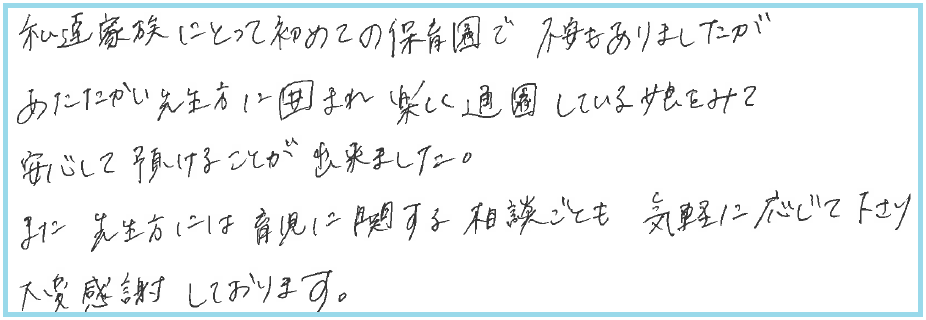 私達家族にとって初めての保育園で 不安もありましたが
あたたかい先生方に囲まれ 楽しく通園している娘をみて
安心して預けることが出来ました。
また 先生方には育児に関する相談ごとも 気軽に応じて下さり
大変感謝しております。